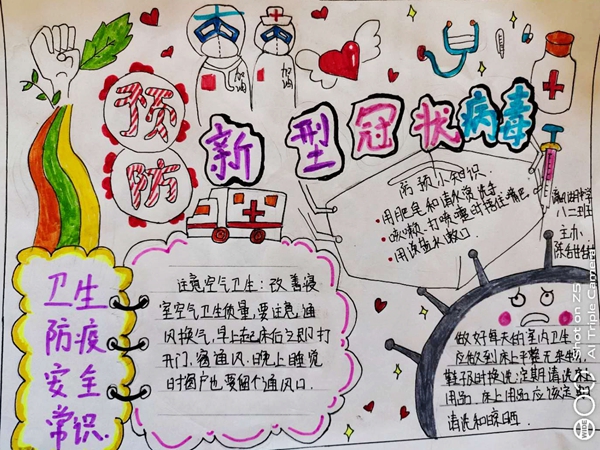 预防
新型冠状病毒
加油
加油
防预小知识
·用肥皂和清水洗手
·咳嗽、打喷嚏时捂住嘴巴
·用淡盐水漱口
八二班
主办
卫生
防疫
安全
常识.
注意空气卫生:改善寝
室空气卫生质量,要注意通
风换气,早上起床后立即打
开门、窗通风.晚上睡觉
时窗户也要留个通风口.
做好每天的室内卫生
应做到床上平整无杂物
鞋袜时换洗;定期清洗
用品.床上用品应该定
清洗和晾晒.
Shot on Z5
AI Triple Camera
WIDE